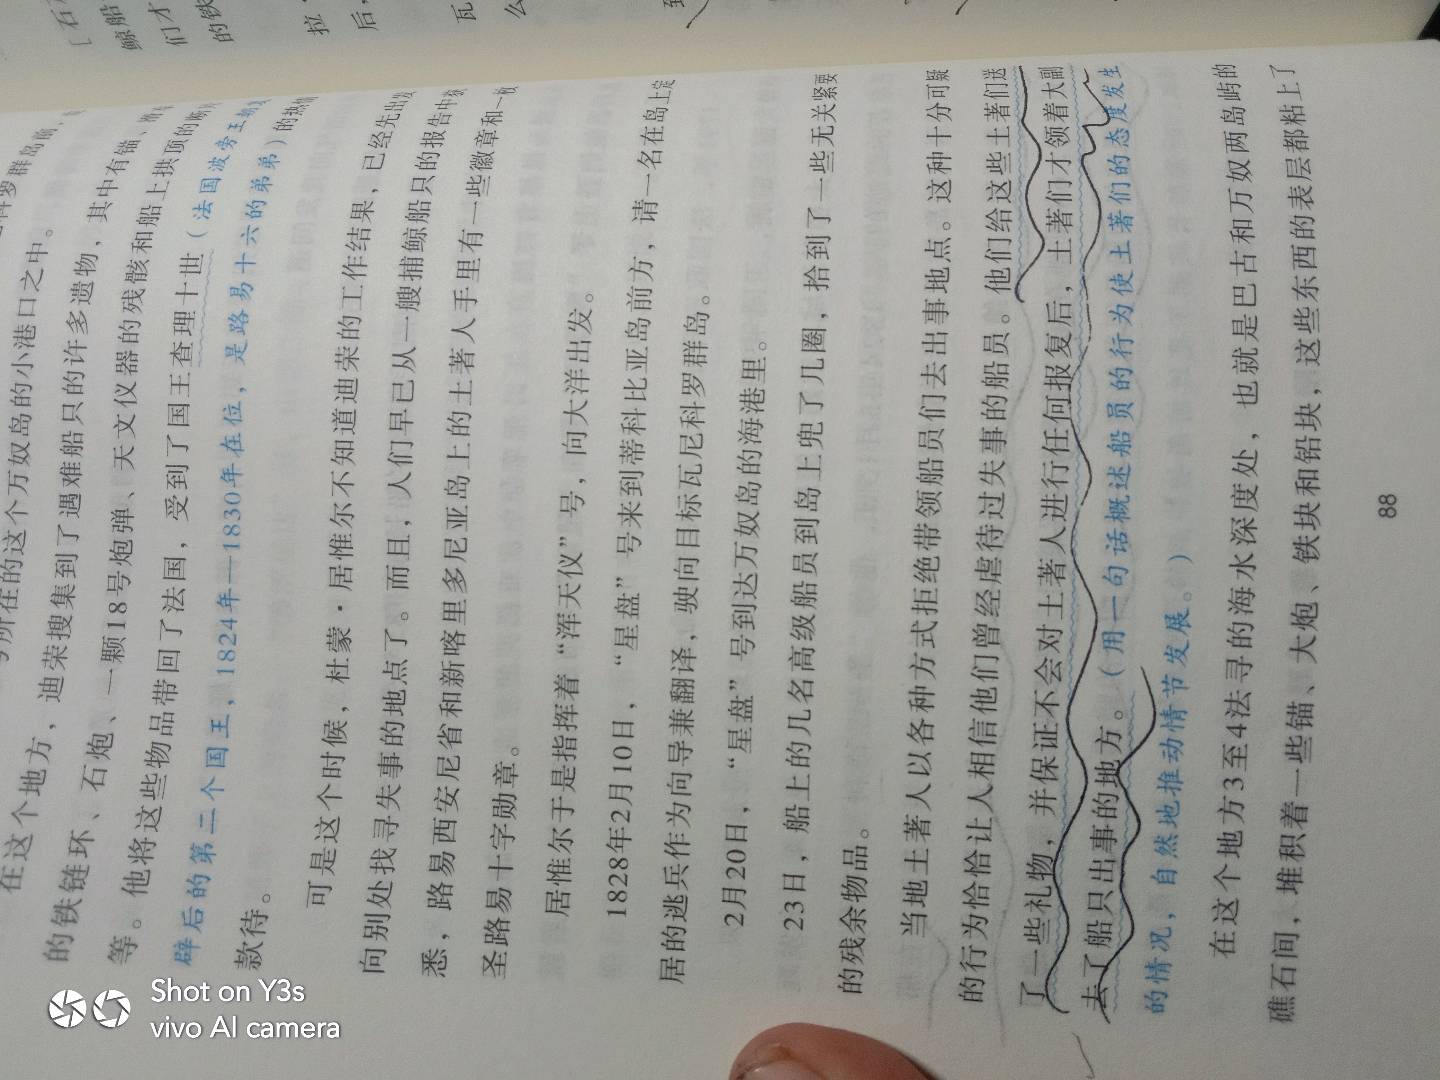 在这个地方，迪荣搜集到了遇难船只的许多遗物，其中有锚、
的铁链环、石炮、一颗18号炮弹、天文仪器的残骸和船上拱顶的断片
等。他将这些物品带回了法国，受到了国王查理十世（法国波旁王朝复
辟后的第二个国王，1824年—1830年在位，是路易十六的弟弟）的热情
款待。
可是这个时候，杜蒙·居惟尔不知道迪荣的工作结果，已经先出发
向别处找寻失事的地点了。而且，人们早已从一艘捕鲸船只的报告中获
悉，路易西安尼省和新喀里多尼亚岛上的土著人手里有一些徽章和一枚
圣路易十字勋章。
居惟尔于是指挥着“浑天仪”号，向大洋出发。
1828年2月10日，“星盘”号来到蒂科比亚岛前方，请一名在岛上定
居的逃兵作为向导兼翻译，驶向目标瓦尼科罗群岛。
2月20日，“星盘”号到达万奴岛的海港里。
23日，船上的几名高级船员到岛上兜了几圈，拾到了一些无关紧要
的残余物品。
当地土著人以各种方式拒绝带领船员们去出事地点。这种十分可疑
的行为恰恰让人相信他们曾经虐待过失事的船员。他们给这些土著们送
了一些礼物，并保证不会对土著人进行任何报复后，土著们才领着大副
去了船只出事的地方。（用一句话概述船员的行为使土著们的态度发生
的情况，自然地推动情节发展。）
在这个地方3至4法寻的海水深度处，也就是巴古和万奴两岛屿的
礁石间，堆积着一些锚、大炮、铁块和铅块，这些东西的表层都粘上了
88
Shot on Y3s
vivo AI camera